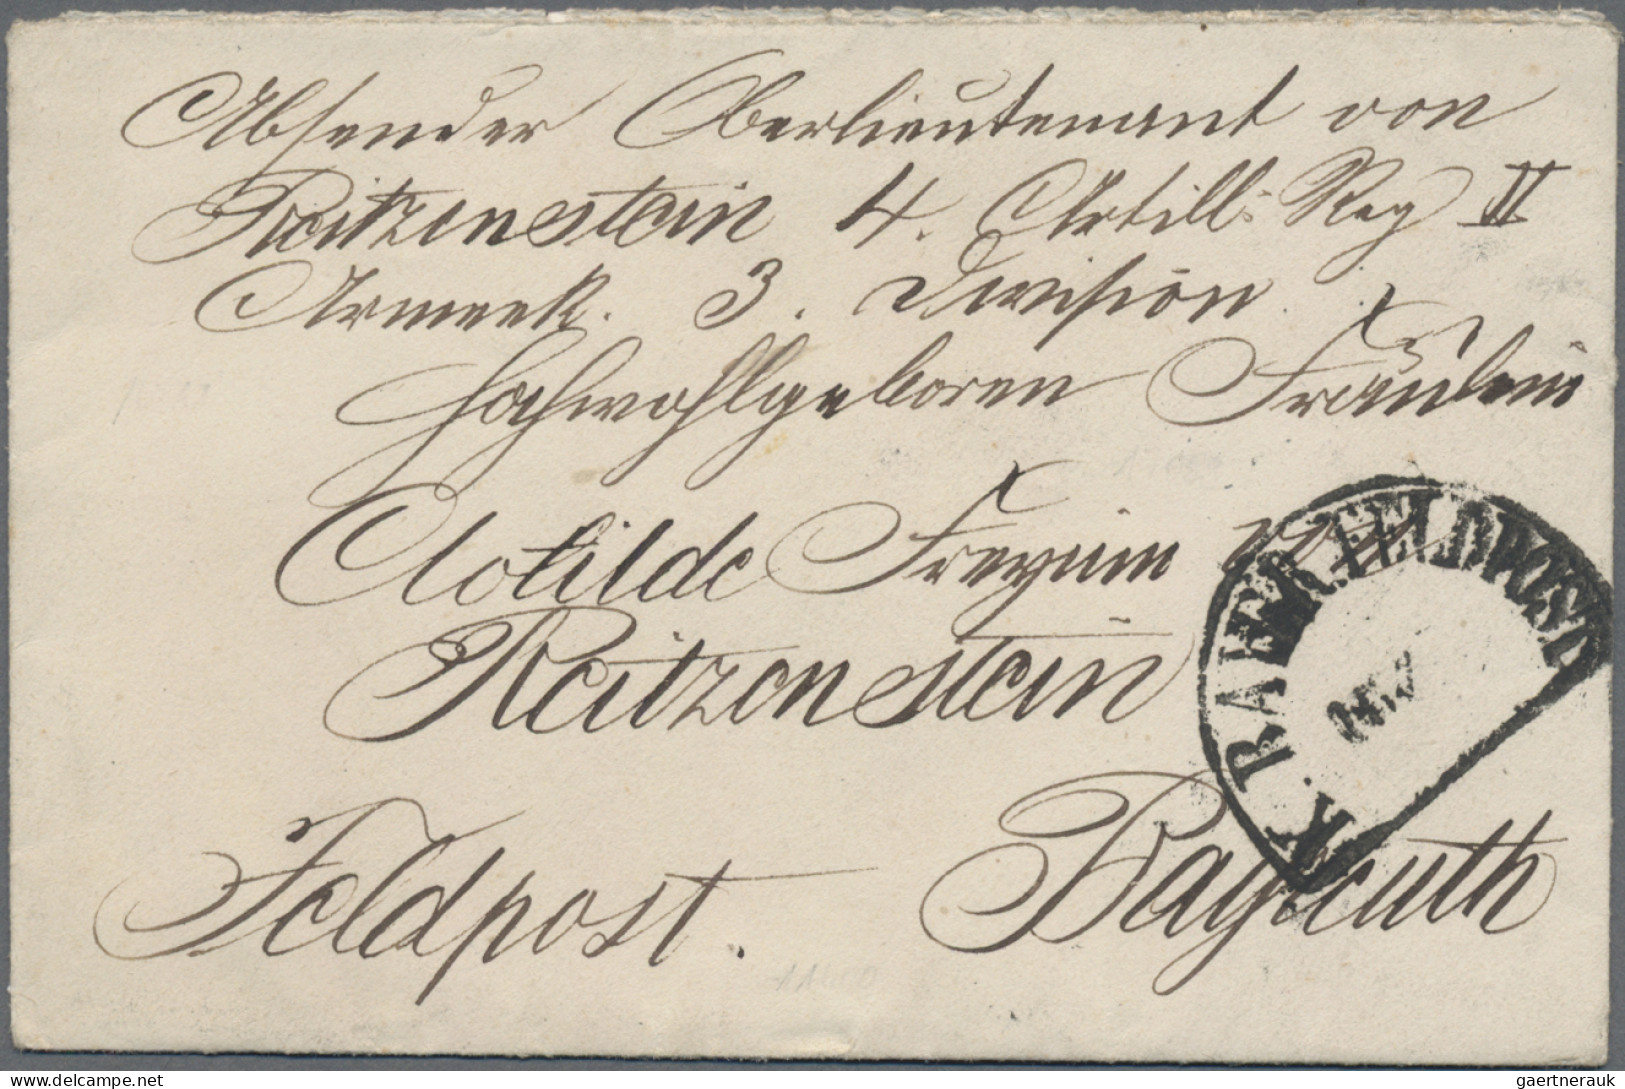 Absender Oberlieutenant von
Reitzenstein 4. Artill: Reg II
Armeek. 3. Division.
Hochwohlgeboren Fräulein
Clotilde Freyinn von
Reitzenstein
Feldpost. Bayreuth
K. BAYER. FELDPOST
delcampe.net
gaertnerauk